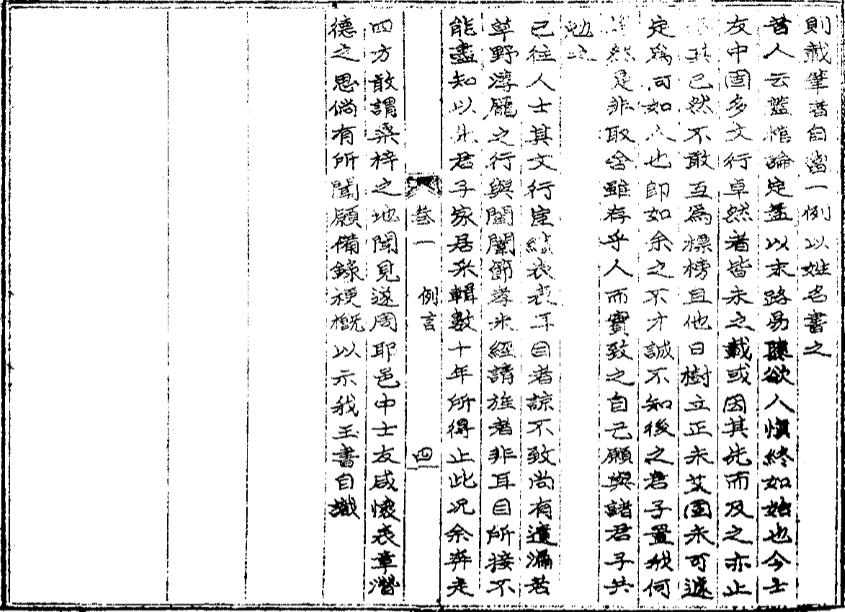 則載筆者自當一例以姓名書之
昔人云蓋棺論定蓋以末路易隳欲人慎終如始也今士
友中固多文行卓然者皆未之載或因其先而及之亦止
其已然不敢互為標榜且他日樹立正未艾固未可遽
定為何如人也即如余之不才誠不知後之君子置我何
等然是非取舍雖存乎人而實致之自己願與諸君子共
勉之
已往人士其文行宦績表表耳目者諒不致尚有遺漏若
草野淳龐之行與閨闈節孝未經請旌者非耳目所接不
能盡知以朱君子家居采輯數十年所得止此况余奔走
卷一 例言 四
四方敢謂桑梓之地聞見遂周耶邑中士友咸懷表章潛
德之思倘有所聞願備錄梗概以示我玉書自識